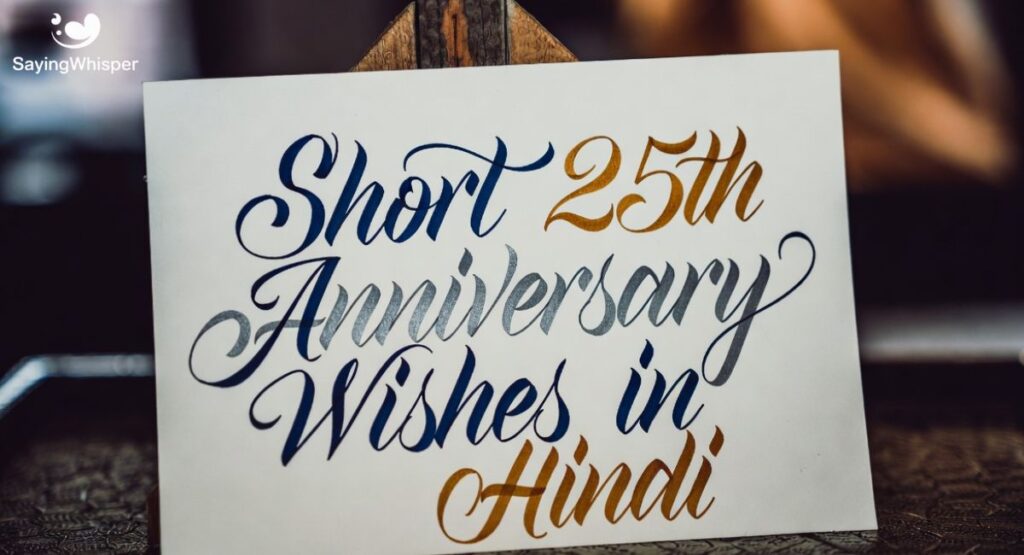 SayingWhisper
Short 25th
Anniversary
Wishes in
Hindi